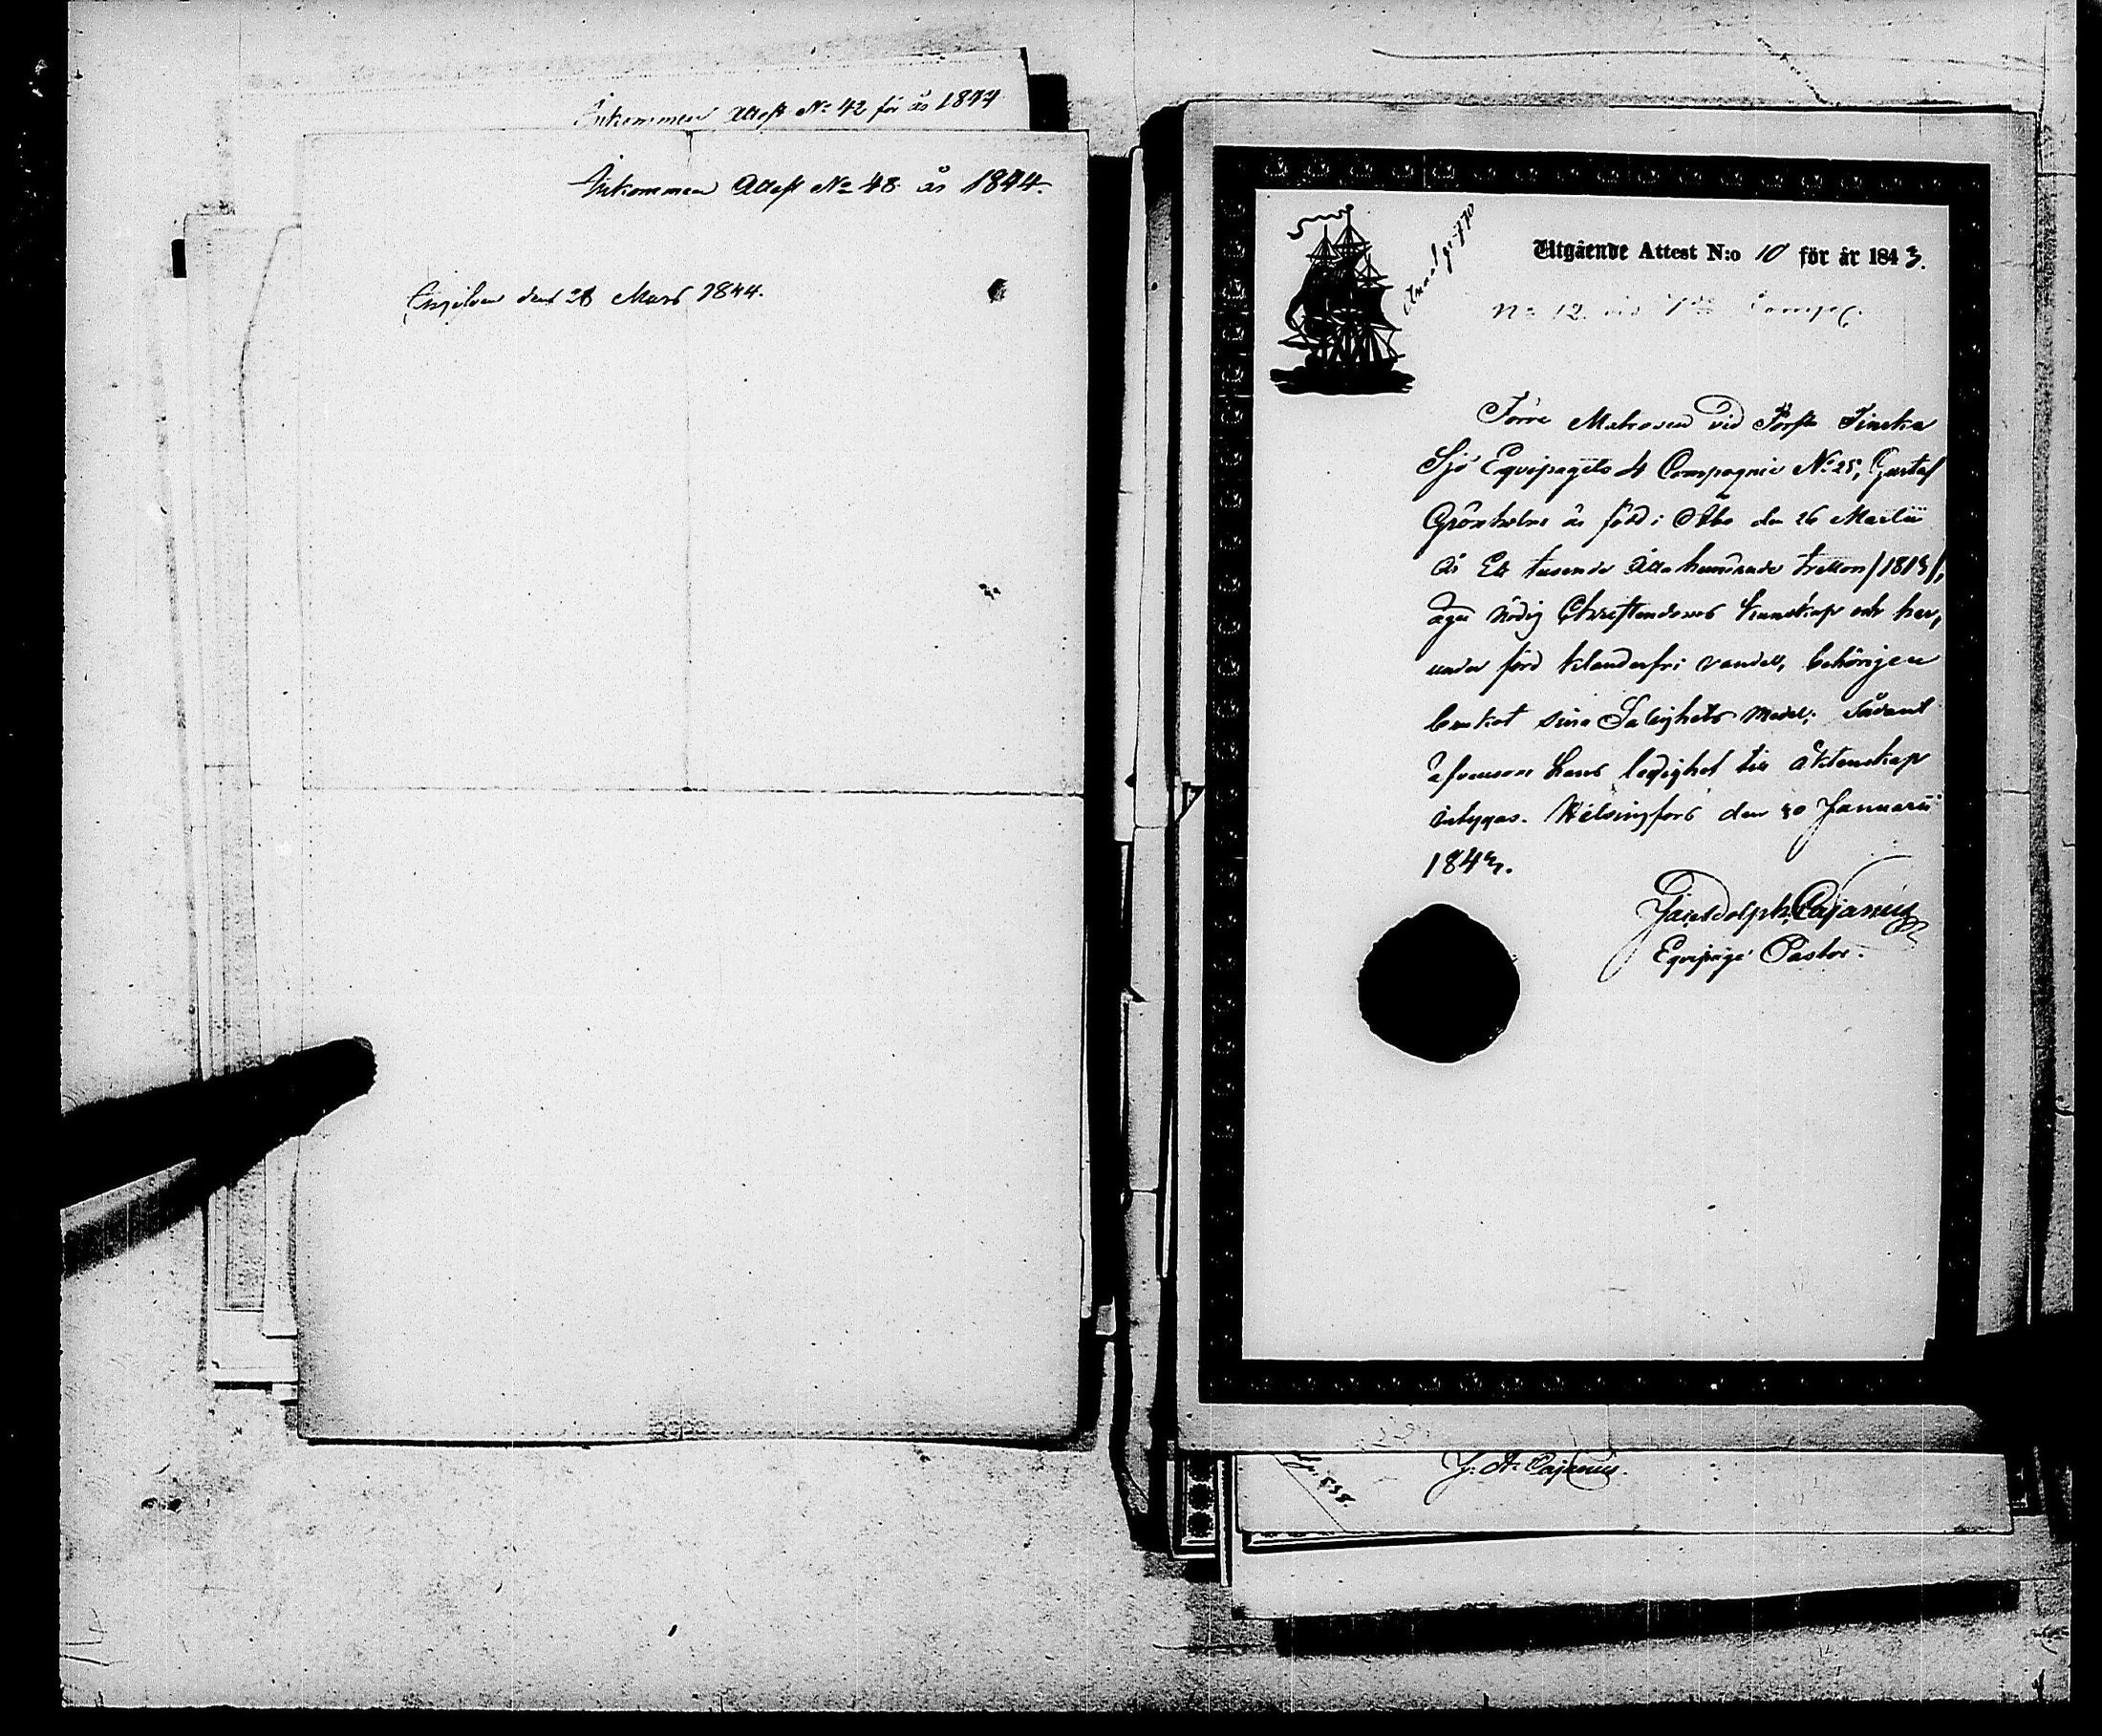 Inkommen Attest No 42 för år 1844
Inkommen Attest No 48 år 1844.
den 28 Mars 1844.
Utgående Attest N:o 10 för år 1843.
No 12 vid 7de Comp.
Förre Matrosen vid Första Finska
Sjö Equipagets 4 Compagnie No 25, Gustaf
Grönholm är född i Åbo den 26 Martii
år Ett tusende åtta hundrade tretton /1813/,
äger nödig Christendoms kunskap och har,
under förd klanderfri vandel, behörigen
brukat sina Salighets medel; Sådant
äfvensom hans ledighet till äktenskap
intygas. Helsingfors den 30 Januarii
1843.
Jac. Adolph. Cajanus
Equipage Pastor.
J. A. Cajanus.